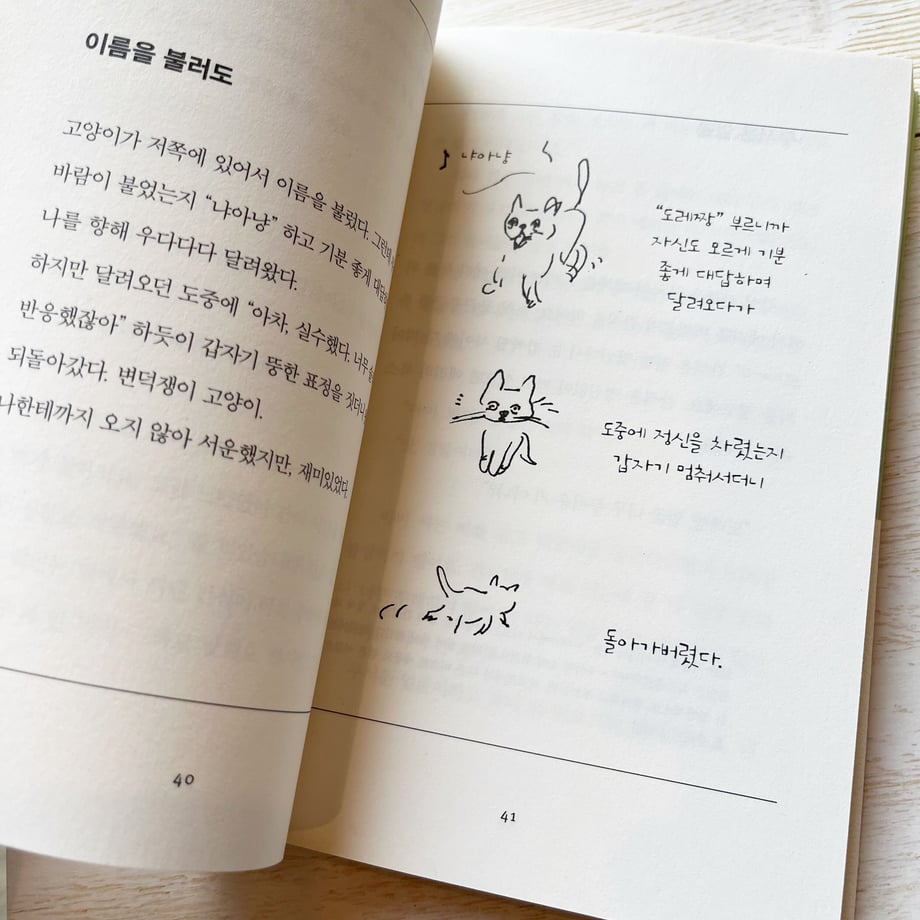 이름을 불러도
고양이가 저쪽에 있어서 이름을 불렀다. 그런데
바람이 불었는지 “냐아냥” 하고 기분 좋게
나를 향해 우다다다 달려왔다.
하지만 달려오던 도중에 “아차, 실수했다. 너무
반응했잖아” 하듯이 갑자기 뚱한 표정을 짓더니
되돌아갔다. 변덕쟁이 고양이.
나한테까지 오지 않아 서운했지만, 재미있었다.
40
♪ 냐아냥
“도레짱” 부르니까
자신도 모르게 기분
좋게 대답하며
달려오다가
도중에 정신을 차렸는지
갑자기 멈춰서더니
돌아가버렸다.
41